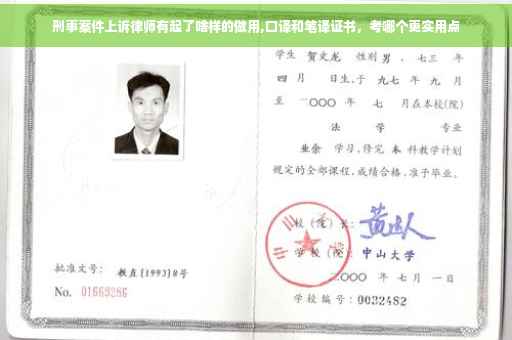 刑事案件上诉律师有起了啥样的做用,口译和笔译证书，考哪个更实用点
学生 贺文龙 性别 男 、七三 年
四 月 日生,于 九七 年 九 月
至 二〇〇〇 年 七 月在本校(院)
法 学 专业
业余 学习,修完 本 科教学计划
规定的全部课程,成绩合格,准予毕业。
校 (院) 长:
学 校 (院): 中山大学
二〇〇〇 年 七 月 一 日
学校编号: 0032482
批准文号: 教直[1993]8号
No. 01669286